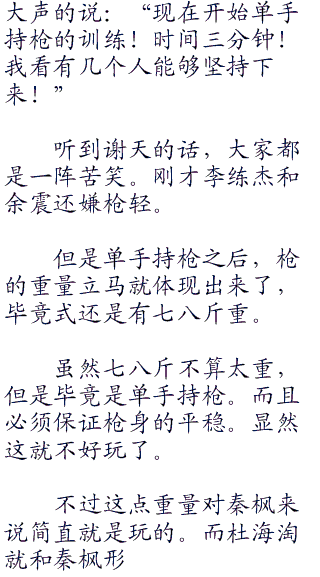 大声的说：“现在开始单手
持枪的训练！时间三分钟！
我看有几个人能够坚持下
来！”
听到谢天的话，大家都
是一阵苦笑。刚才李练杰和
余震还嫌枪轻。
但是单手持枪之后，枪
的重量立马就体现出来了，
毕竟式还是有七八斤重。
虽然七八斤不算太重，
但是毕竟是单手持枪。而且
必须保证枪身的平稳。显然
这就不好玩了。
不过这点重量对秦枫来
说简直就是玩的。而杜海淘
就和秦枫形